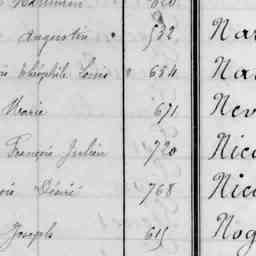 Augustin " 532 Nar
Théophile Louis " 654 Nar
Marie 671 Nev
François Julien 720 Nico
Désiré 768 Nico
Joseph 615 Nog